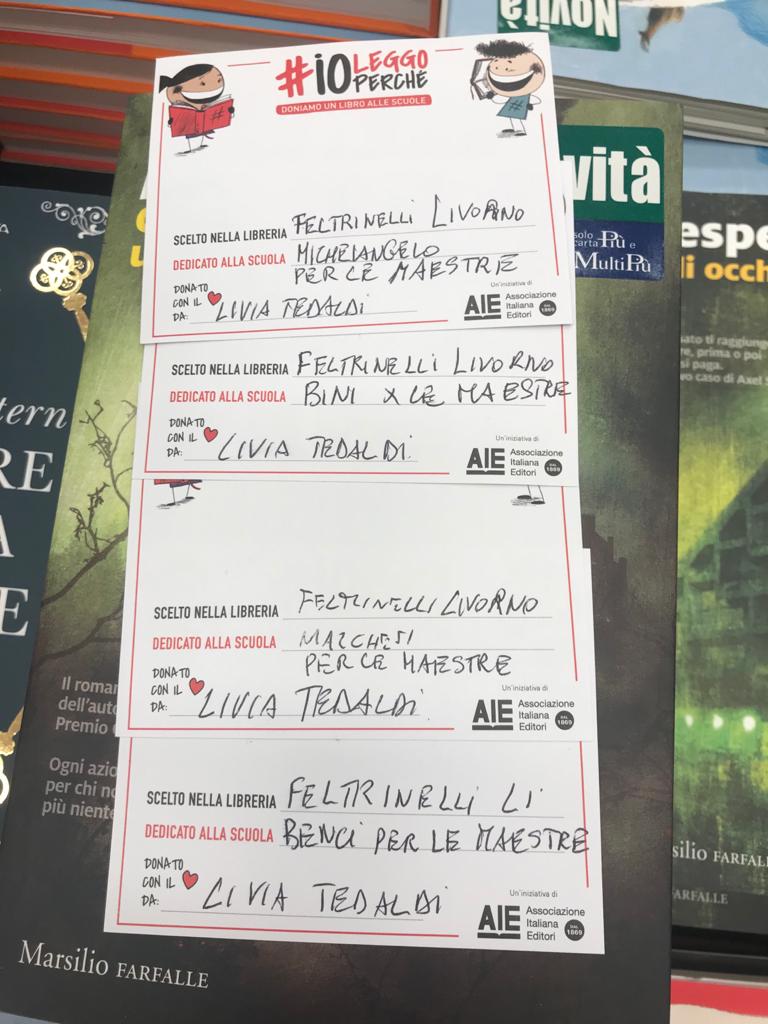 Novità
#IOLEGGOPERCHÉ
DONIAMO UN LIBRO ALLE SCUOLE
SCELTO NELLA LIBRERIA FELTRINELLI LIVORNO
DEDICATO ALLA SCUOLA MICHELANGELO
PER LE MAESTRE
DONATO
CON IL
DA: LIVIA TEDALDI
Un'iniziativa di
AIE Associazione
Italiana
Editori
DAL 1869
SCELTO NELLA LIBRERIA FELTRINELLI LIVORNO
DEDICATO ALLA SCUOLA BINI X LE MAESTRE
DONATO
CON IL
DA: LIVIA TEDALDI
Un'iniziativa di
AIE Associazione
Italiana
Editori
DAL 1869
SCELTO NELLA LIBRERIA FELTRINELLI LIVORNO
DEDICATO ALLA SCUOLA MARCHESI
PER LE MAESTRE
DONATO
CON IL
DA: LIVIA TEDALDI
Un'iniziativa di
AIE Associazione
Italiana
Editori
DAL 1869
SCELTO NELLA LIBRERIA FELTRINELLI LI
DEDICATO ALLA SCUOLA BENCI PER LE MAESTRE
DONATO
CON IL
DA: LIVIA TEDALDI
Un'iniziativa di
AIE Associazione
Italiana
Editori
DAL 1869
vità
solo
carta Più e
MultiPiù
tern
RE
A
E
Il roma
dell'auto
Premio
Ogni azio
per chi no
più niente
Marsilio FARFALLE
espe
li occh
ato ti raggiung
re, prima o poi
si paga.
vo caso di Axel S
silio FARFALL
ARFALLE